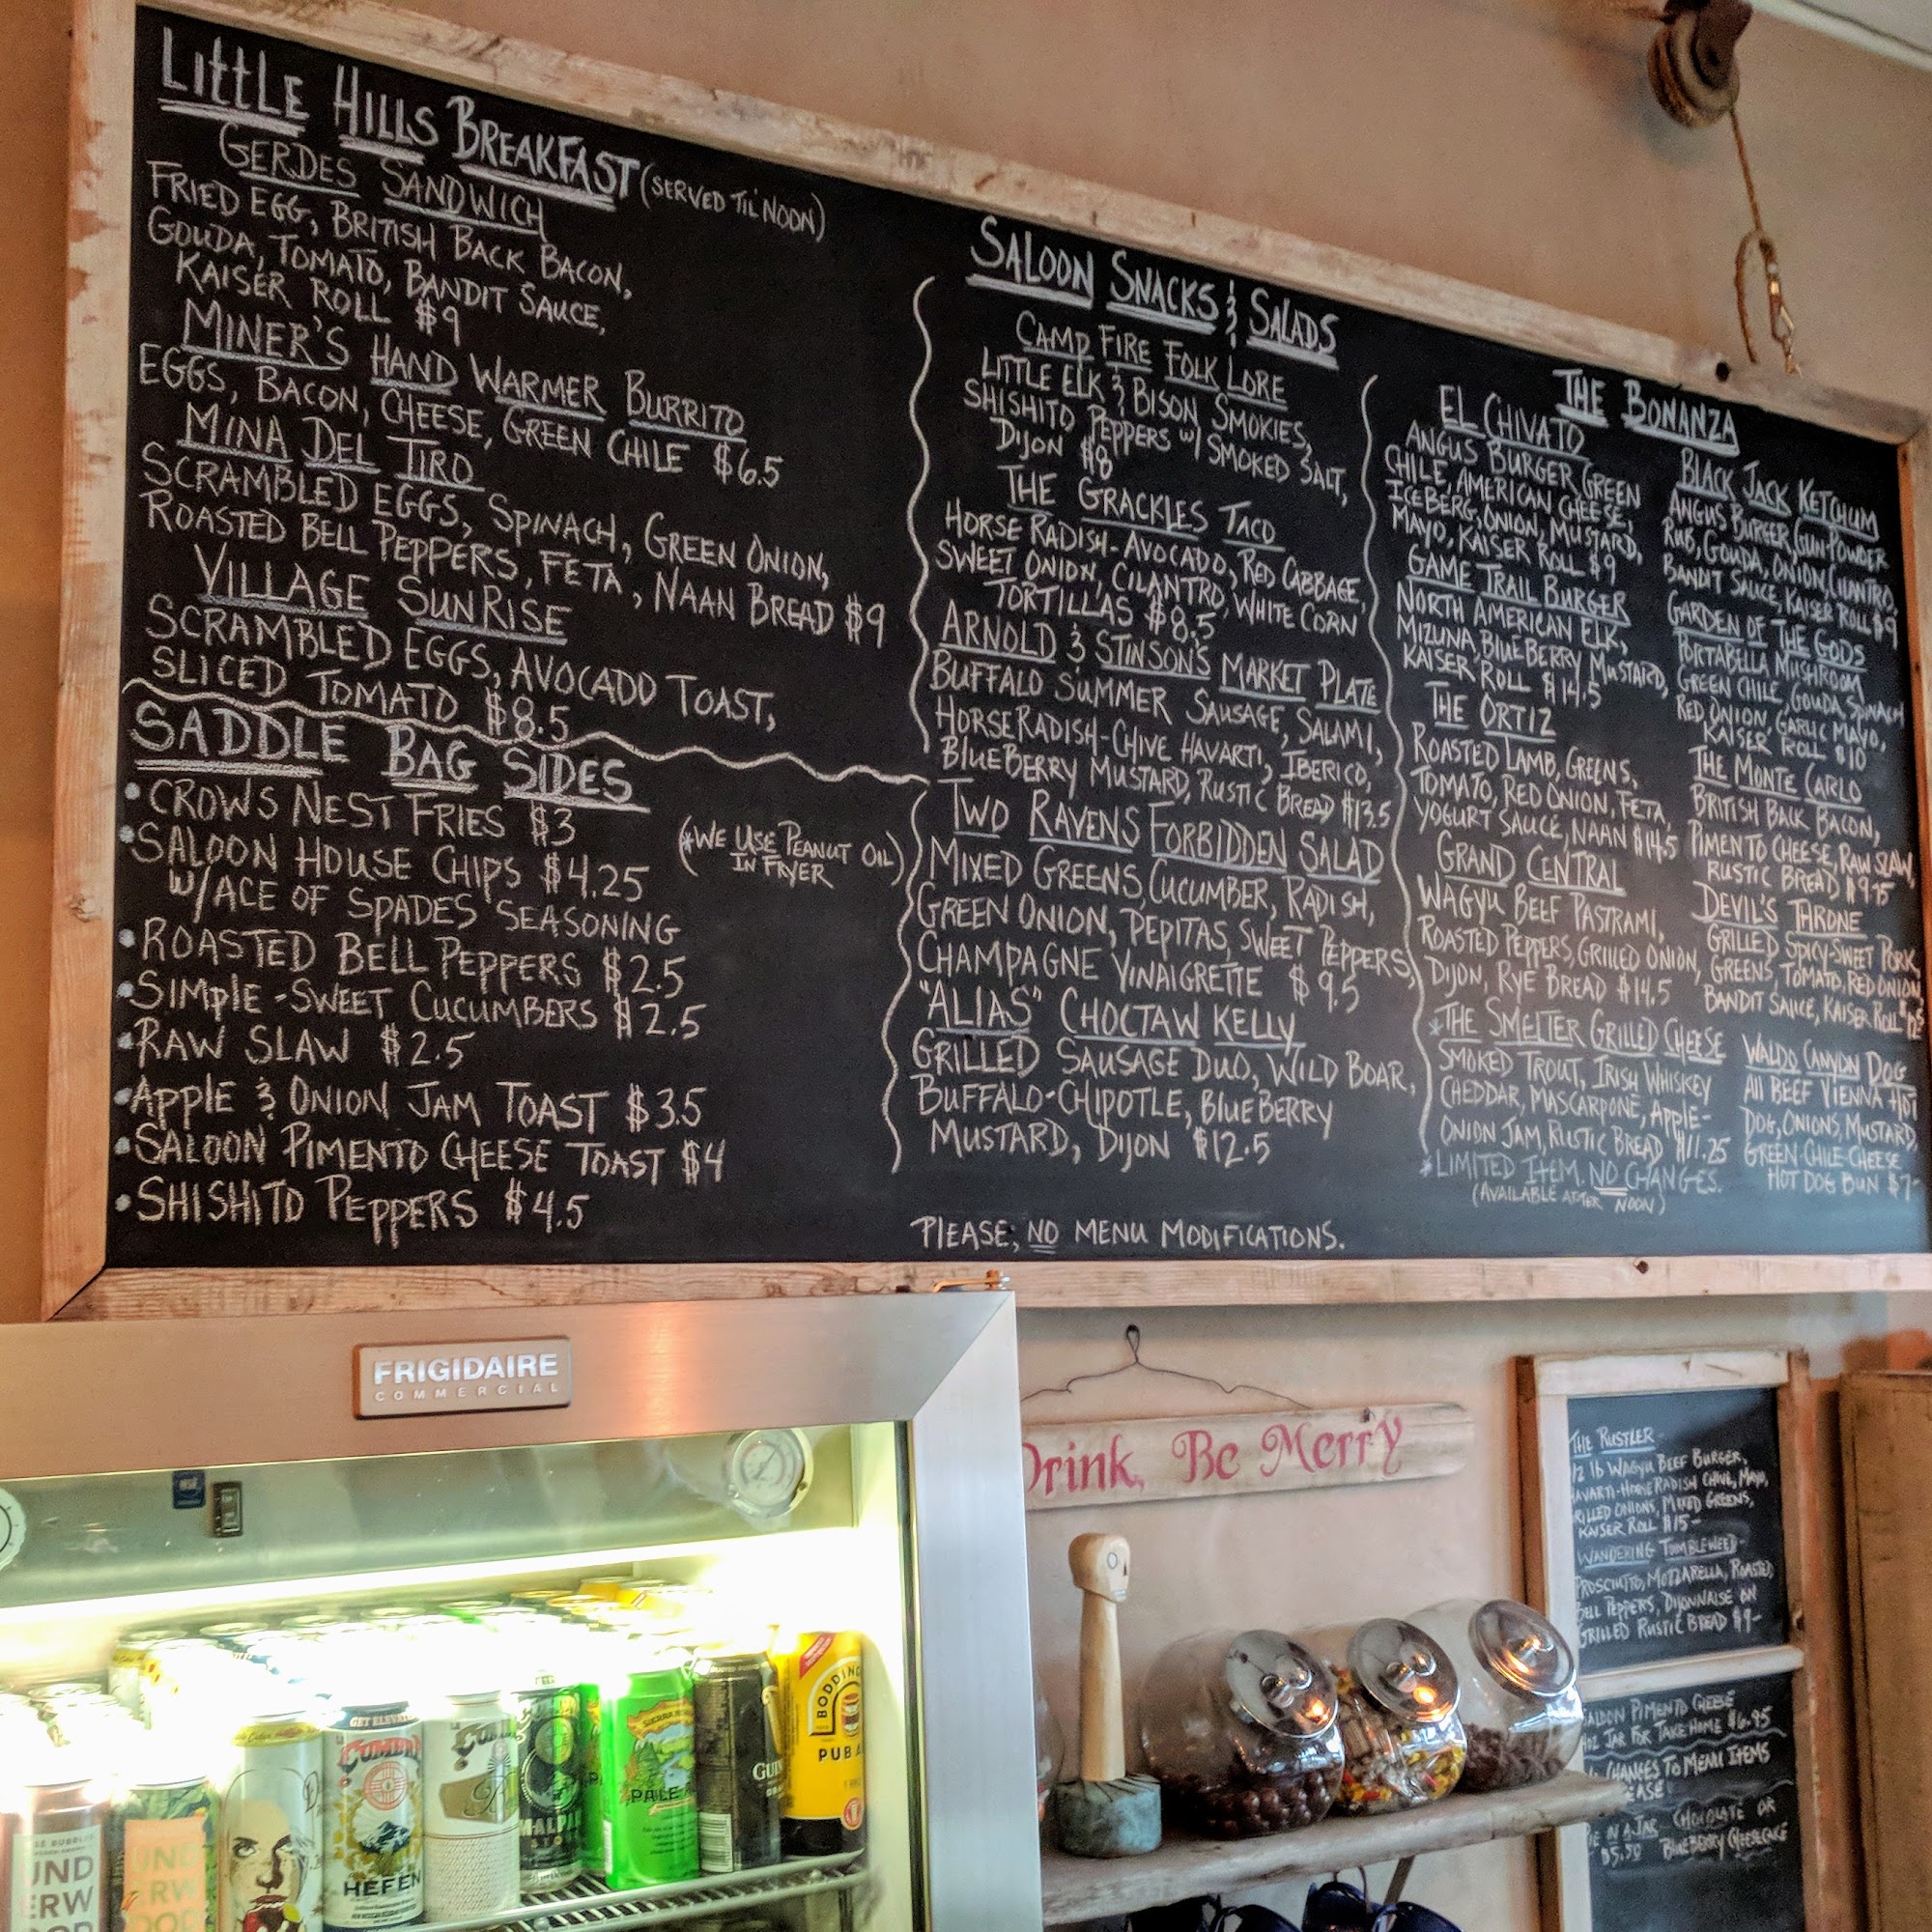 LITTLE HILLS BREAKFAST (SERVED TIL' NOON)
GERDES SANDWICH
FRIED EGG, BRITISH BACK BACON,
GOUDA, TOMATO, BANDIT SAUCE,
KAISER ROLL $9
MINER'S HAND WARMER BURRITO
EGGS, BACON, CHEESE, GREEN CHILE $6.5
MINA DEL TIRO
SCRAMBLED EGGS, SPINACH, GREEN ONION,
ROASTED BELL PEPPERS, FETA, NAAN BREAD $9
VILLAGE SUNRISE
SCRAMBLED EGGS, AVOCADO TOAST,
SLICED TOMATO $8.5
SADDLE BAG SIDES
• CROWS NEST FRIES $3
• SALOON HOUSE CHIPS $4.25
W/ACE OF SPADES SEASONING
(*WE USE PEANUT OIL
IN FRYER)
• ROASTED BELL PEPPERS $2.5
• SIMPLE-SWEET CUCUMBERS $2.5
• RAW SLAW $2.5
• APPLE & ONION JAM TOAST $3.5
• SALOON PIMENTO CHEESE TOAST $4
• SHISHITO PEPPERS $4.5
SALOON SNACKS & SALADS
CAMP FIRE FOLK LORE
LITTLE ELK & BISON SMOKIES,
SHISHITO PEPPERS W/ SMOKED SALT,
DIJON $8
THE GRACKLES TACO
HORSE RADISH-AVOCADO, RED CABBAGE,
SWEET ONION, CILANTRO, WHITE CORN
TORTILLAS $8.5
ARNOLD & STINSON'S MARKET PLATE
BUFFALO SUMMER SAUSAGE, SALAMI,
HORSERADISH-CHIVE HAVARTI, IBERICO,
BLUEBERRY MUSTARD, RUSTIC BREAD $13.5
TWO RAVENS FORBIDDEN SALAD
MIXED GREENS, CUCUMBER, RADISH,
GREEN ONION, PEPITAS, SWEET PEPPERS,
CHAMPAGNE VINAIGRETTE $9.5
"ALIAS" CHOCTAW KELLY
GRILLED SAUSAGE DUO, WILD BOAR,
BUFFALO-CHIPOTLE, BLUEBERRY
MUSTARD, DIJON $12.5
PLEASE, NO MENU MODIFICATIONS.
THE BONANZA
EL CHIVATO
ANGUS BURGER GREEN
CHILE, AMERICAN CHEESE,
ICEBERG, ONION, MUSTARD,
MAYO, KAISER ROLL $9
GAME TRAIL BURGER
NORTH AMERICAN ELK,
MIZUNA, BLUEBERRY MUSTARD,
KAISER ROLL $14.5
THE ORTIZ
ROASTED LAMB, GREENS,
TOMATO, RED ONION, FETA,
YOGURT SAUCE, NAAN $14.5
GRAND CENTRAL
WAGYU BEEF PASTRAMI,
ROASTED PEPPERS, GRILLED ONION,
DIJON, RYE BREAD $14.5
*THE SMELTER GRILLED CHEESE
SMOKED TROUT, IRISH WHISKEY
CHEDDAR, MASCARPONE, APPLE-
ONION JAM, RUSTIC BREAD $11.25
*LIMITED ITEM. NO CHANGES.
(AVAILABLE AFTER NOON)
BLACK JACK KETCHUM
ANGUS BURGER, GUNPOWDER
RUB, GOUDA, ONION, CILANTRO,
BANDIT SAUCE, KAISER ROLL $9
GARDEN OF THE GODS
PORTABELLA MUSHROOM
GREEN CHILE, GOUDA, SPINACH
RED ONION, GARLIC MAYO,
KAISER ROLL $10
THE MONTE CARLO
BRITISH BACK BACON,
PIMENTO CHEESE, RAW SLAW,
RUSTIC BREAD $9.75
DEVIL'S THRONE
GRILLED SPICY-SWEET PORK,
GREENS, TOMATO, RED ONION
BANDIT SAUCE, KAISER ROLL
WALDO CANYON DOG
All BEEF VIENNA HOT
DOG, ONIONS, MUSTARD,
GREEN CHILE CHEESE
HOT DOG BUN $7-
FRIGIDAIRE
COMMERCIAL
Drink, Be Merry
THE RUSTLER-
1/2 lb WAGYU BEEF BURGER,
HAVARTI-HORSERADISH CHIVE, MAYO,
GRILLED ONIONS, MIXED GREENS,
KAISER ROLL $15-
WANDERING TUMBLEWEED-
PROSCIUTTO, MOZZARELLA, ROASTED
BELL PEPPERS, DIJONNAISE ON
GRILLED RUSTIC BREAD $9-
SALOON PIMENTO CHEESE
JAR FOR TAKE HOME $6.95
CHANGES TO MENU ITEMS
IN A JAR CHOCOLATE OR
$5.50 BLUEBERRY CHEESECAKE
GET ELEVATED
LA CUMBRE
HEFEN
MALPAIS
STOUT
SIERRA NEVADA
PALE
GUIN
BODDING
PUB A
UND
ERW
UND
ERW